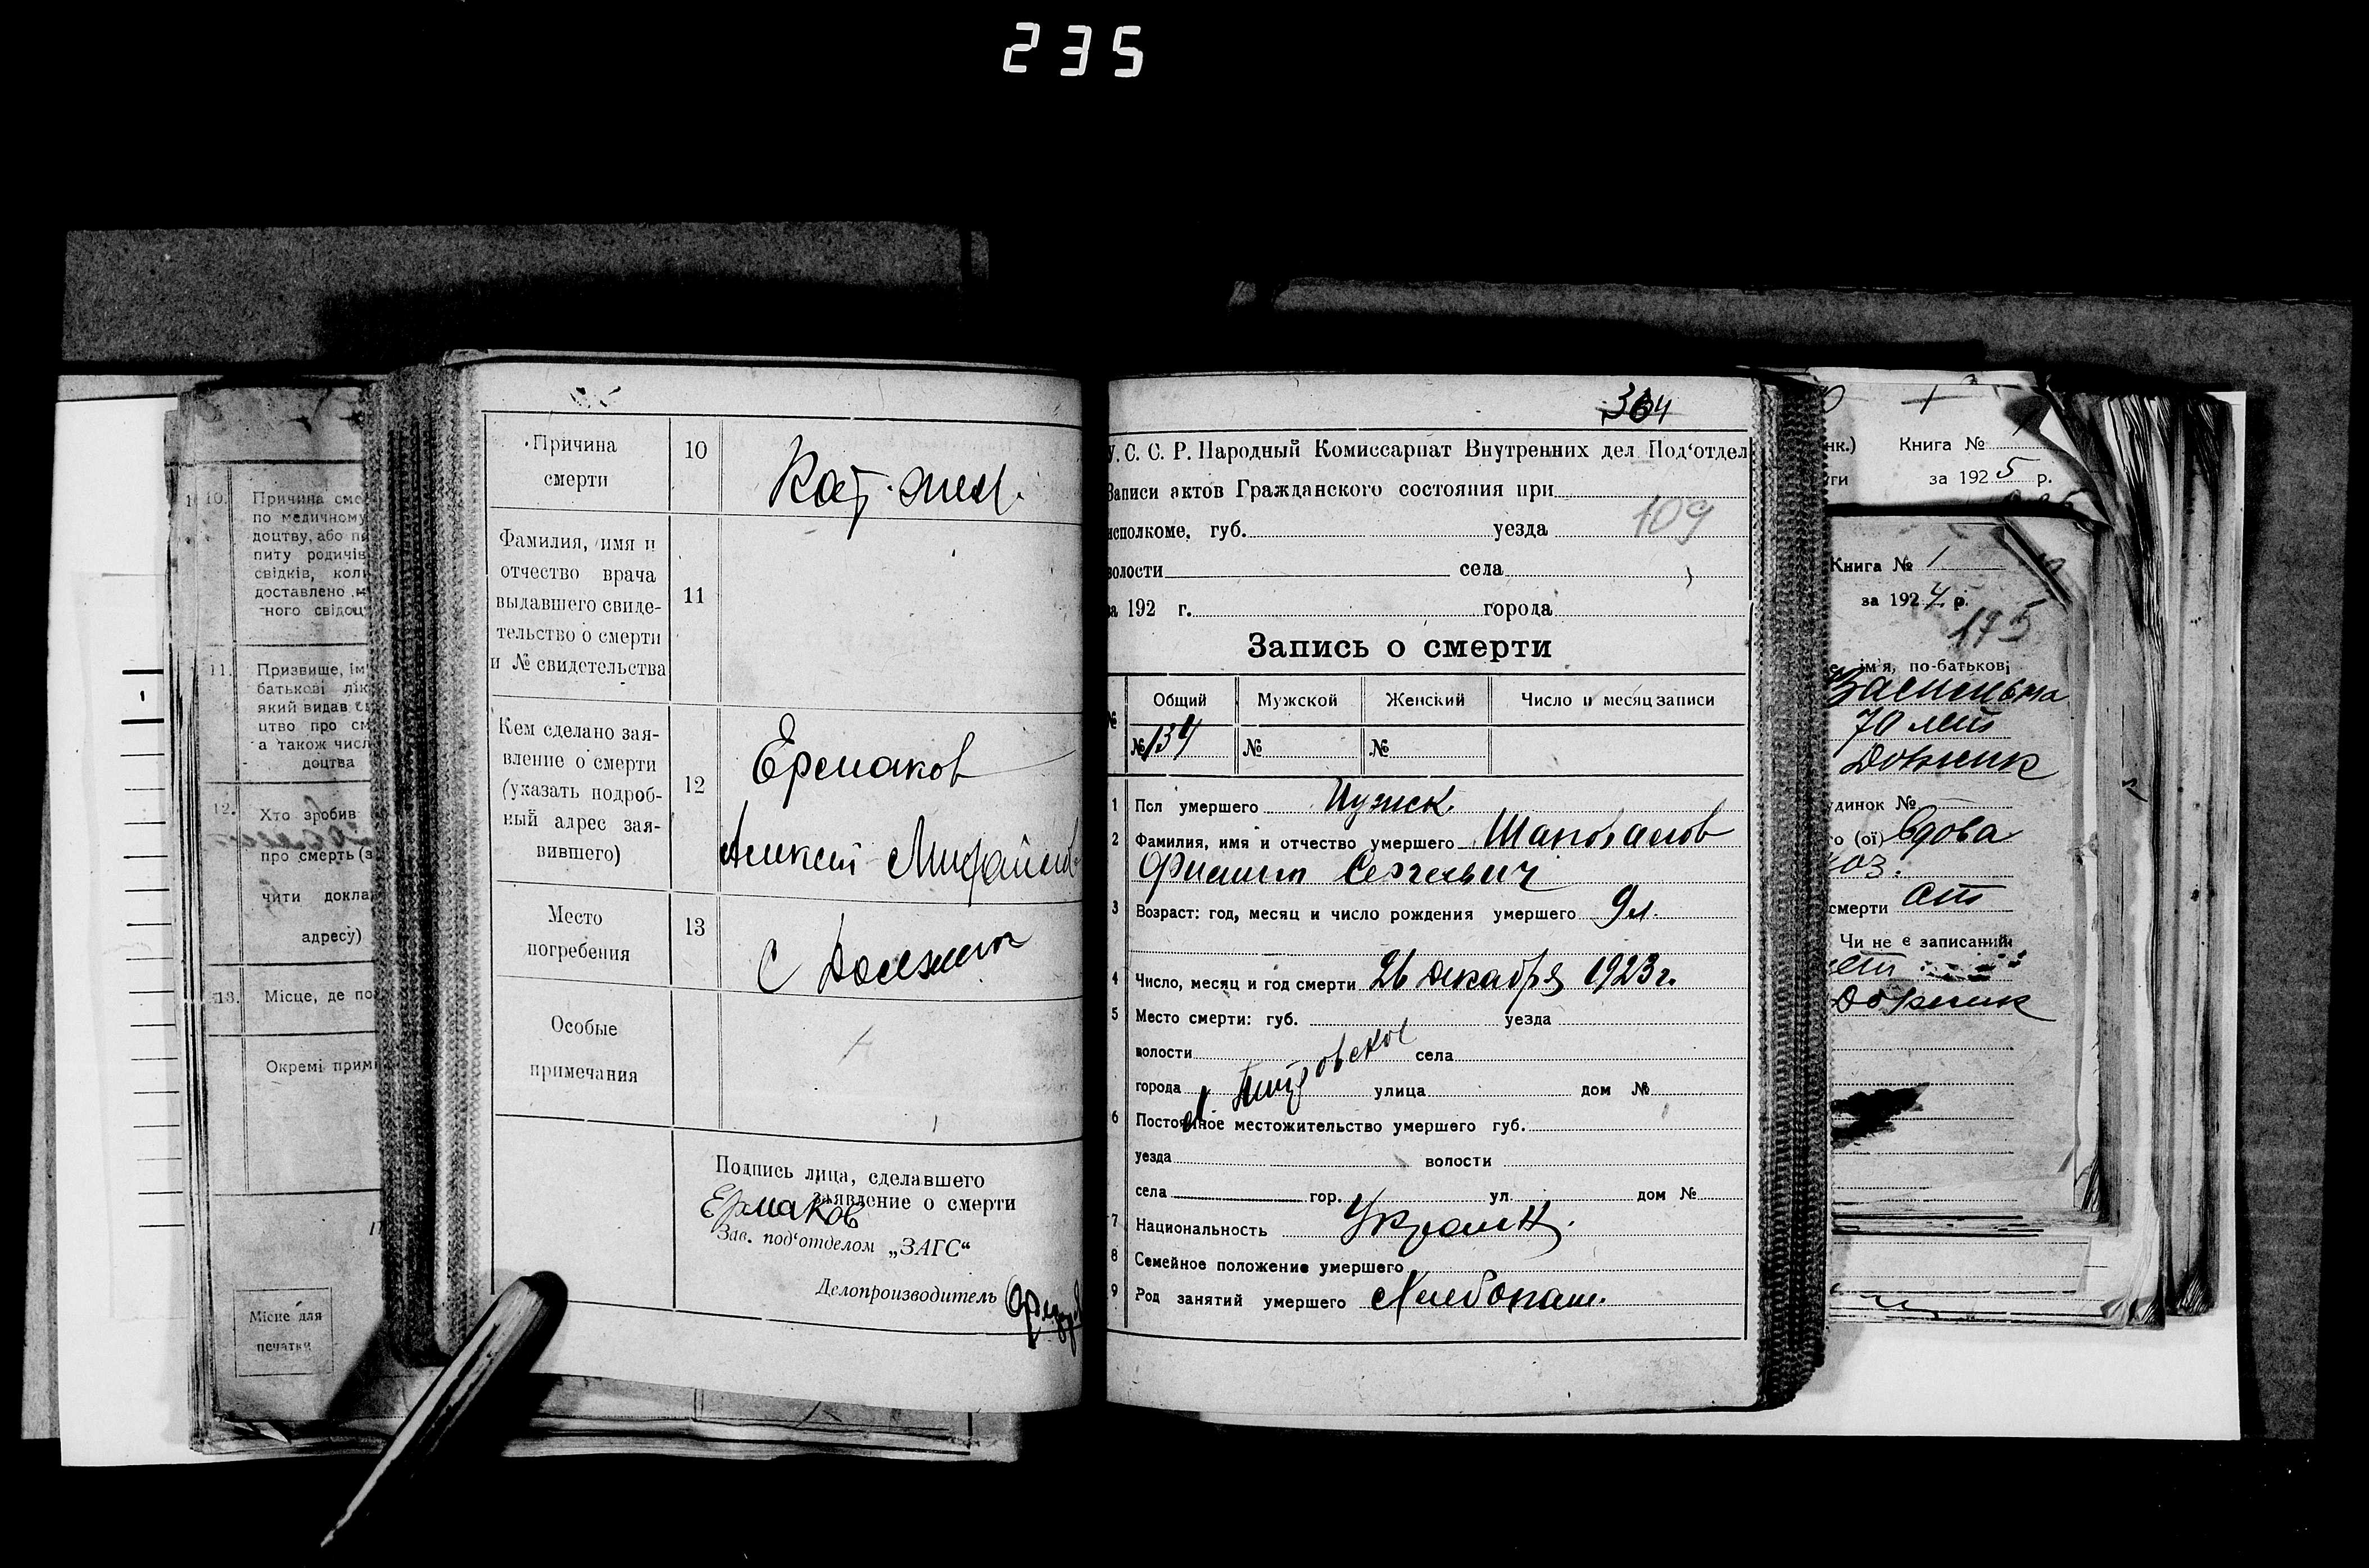 235
10.
Причина сме
по медичному
доцтву, або п
питу родичів
свідків, коли
доставлено м
ного свідоц
11.
батькові лік
який видав с
цтво про см
а також числ
доцтва
12.
Хто зробив
про смерть (з
чити докла
адресу)
13.
Місце, де по
Окремі примі
Місце для
печатки
Причина
смерти
10
Фамилия, имя и
отчество врача
выдавшего свиде-
тельство о смерти
и № свидетельства
11
Кем сделано зая-
вление о смерти
(указать подроб-
ный адрес зая-
вившего)
12
Ермаков
Алексей Михайлов
Место
погребения
13
Особые
примечания
Подпись лица, сделавшего
заявление о смерти
Ермаков
Зав. под'отделом „ЗАГС“
Делопроизводитель
364
У. С. С. Р. Народный Комиссариат Внутренних дел Под'отдел
Записи актов Гражданского состояния при
109
исполкоме, губ. уезда
волости села
за 192 г. города
Запись о смерти
№
Общий Мужской Женский Число и месяц записи
№ 134 № №
1 Пол умершего Мужск.
2 Фамилия, имя и отчество умершего Шаповалов
Филипп Сергеевич
3 Возраст: год, месяц и число рождения умершего 9 л.
4 Число, месяц и год смерти 26 декабря 1923 г.
5 Место смерти: губ. уезда
волости села
города улица дом №
6 Постоянное местожительство умершего губ.
уезда волости
села гор. ул. дом №
7 Национальность Украин.
8 Семейное положение умершего
9 Род занятий умершего Хлебопаш.
нк.) Книга № 1
за 1925 р.
Книга № 1
за 1924 р.
175
ім'я, по-батькові
70 лет
удинок №
го (ої) вдова
смерти
Чи не є записаний